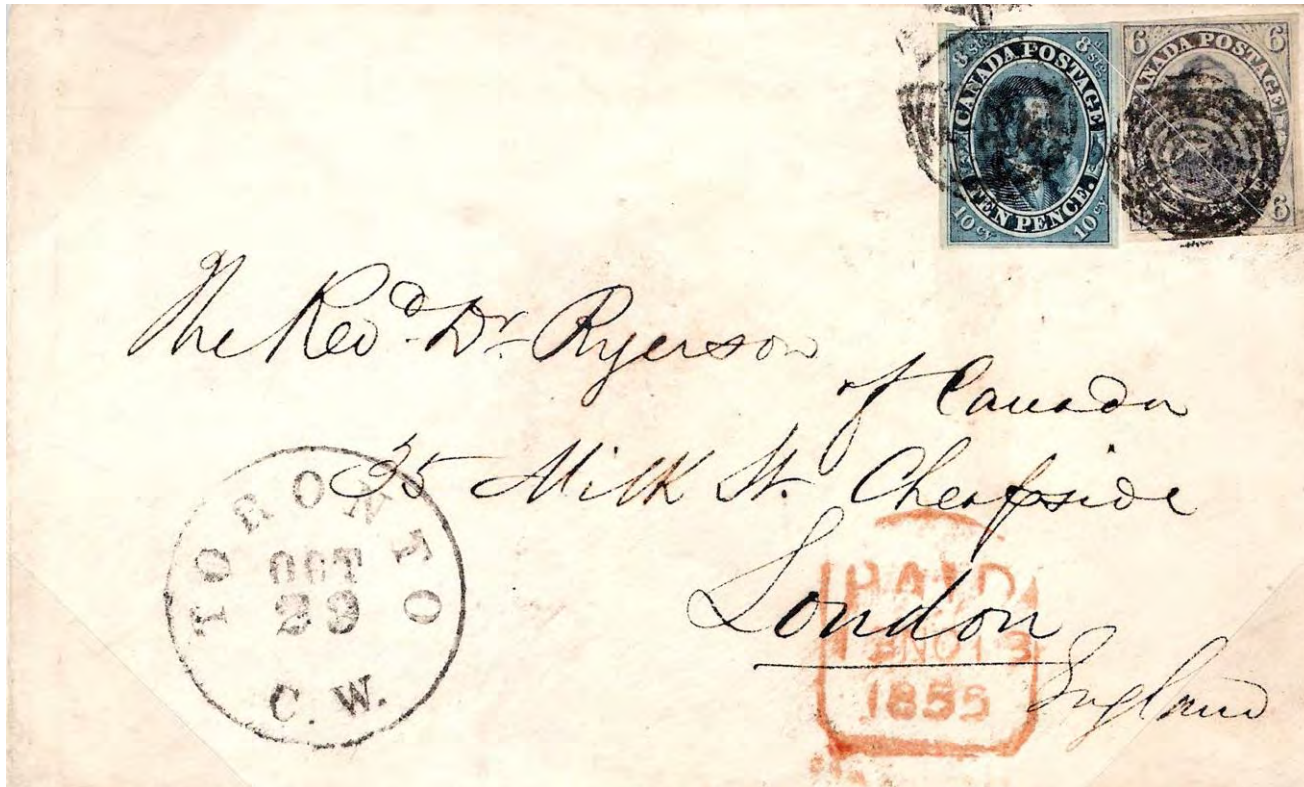 8 stg. 8 stg.
CANADA POSTAGE
TEN PENCE.
10 cy 10 cy
6 6
CANADA POSTAGE
6
The Revd. Dr. Ryerson
of Canada
25 Milk St. Cheapside
London
England
TORONTO
OCT
29
C. W.
PAID
NO 13
1855